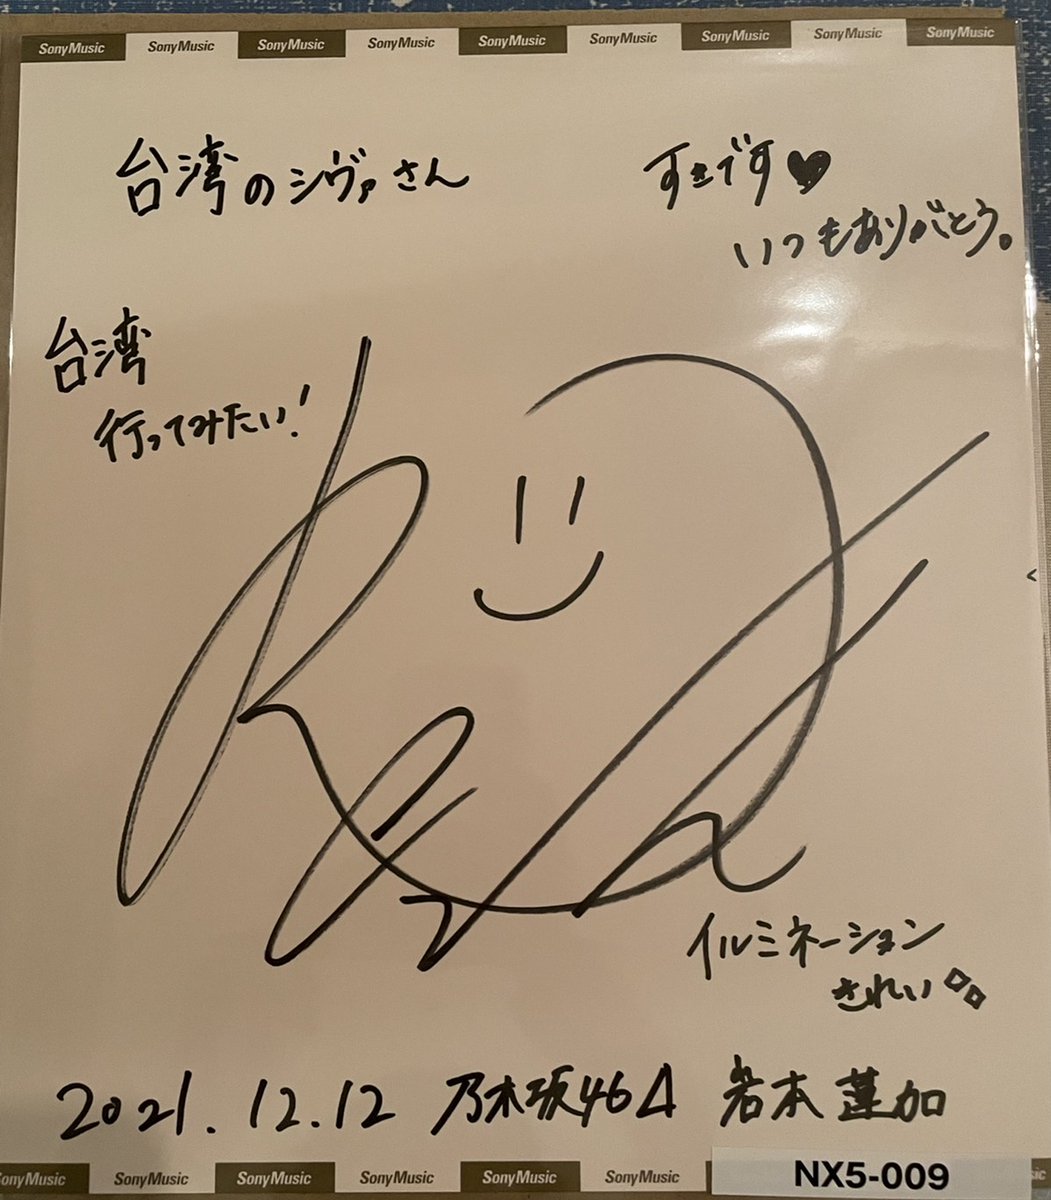 SonyMusic SonyMusic SonyMusic SonyMusic SonyMusic SonyMusic SonyMusic SonyMusic SonyMusic
台湾のシヴァさん
すきです♥
いつもありがとう。
台湾
行ってみたい!
イルミネーション
きれい
2021.12.12 乃木坂46 岩本蓮加
SonyMusic SonyMusic SonyMusic SonyMusic SonyMusic SonyMusic
NX5-009